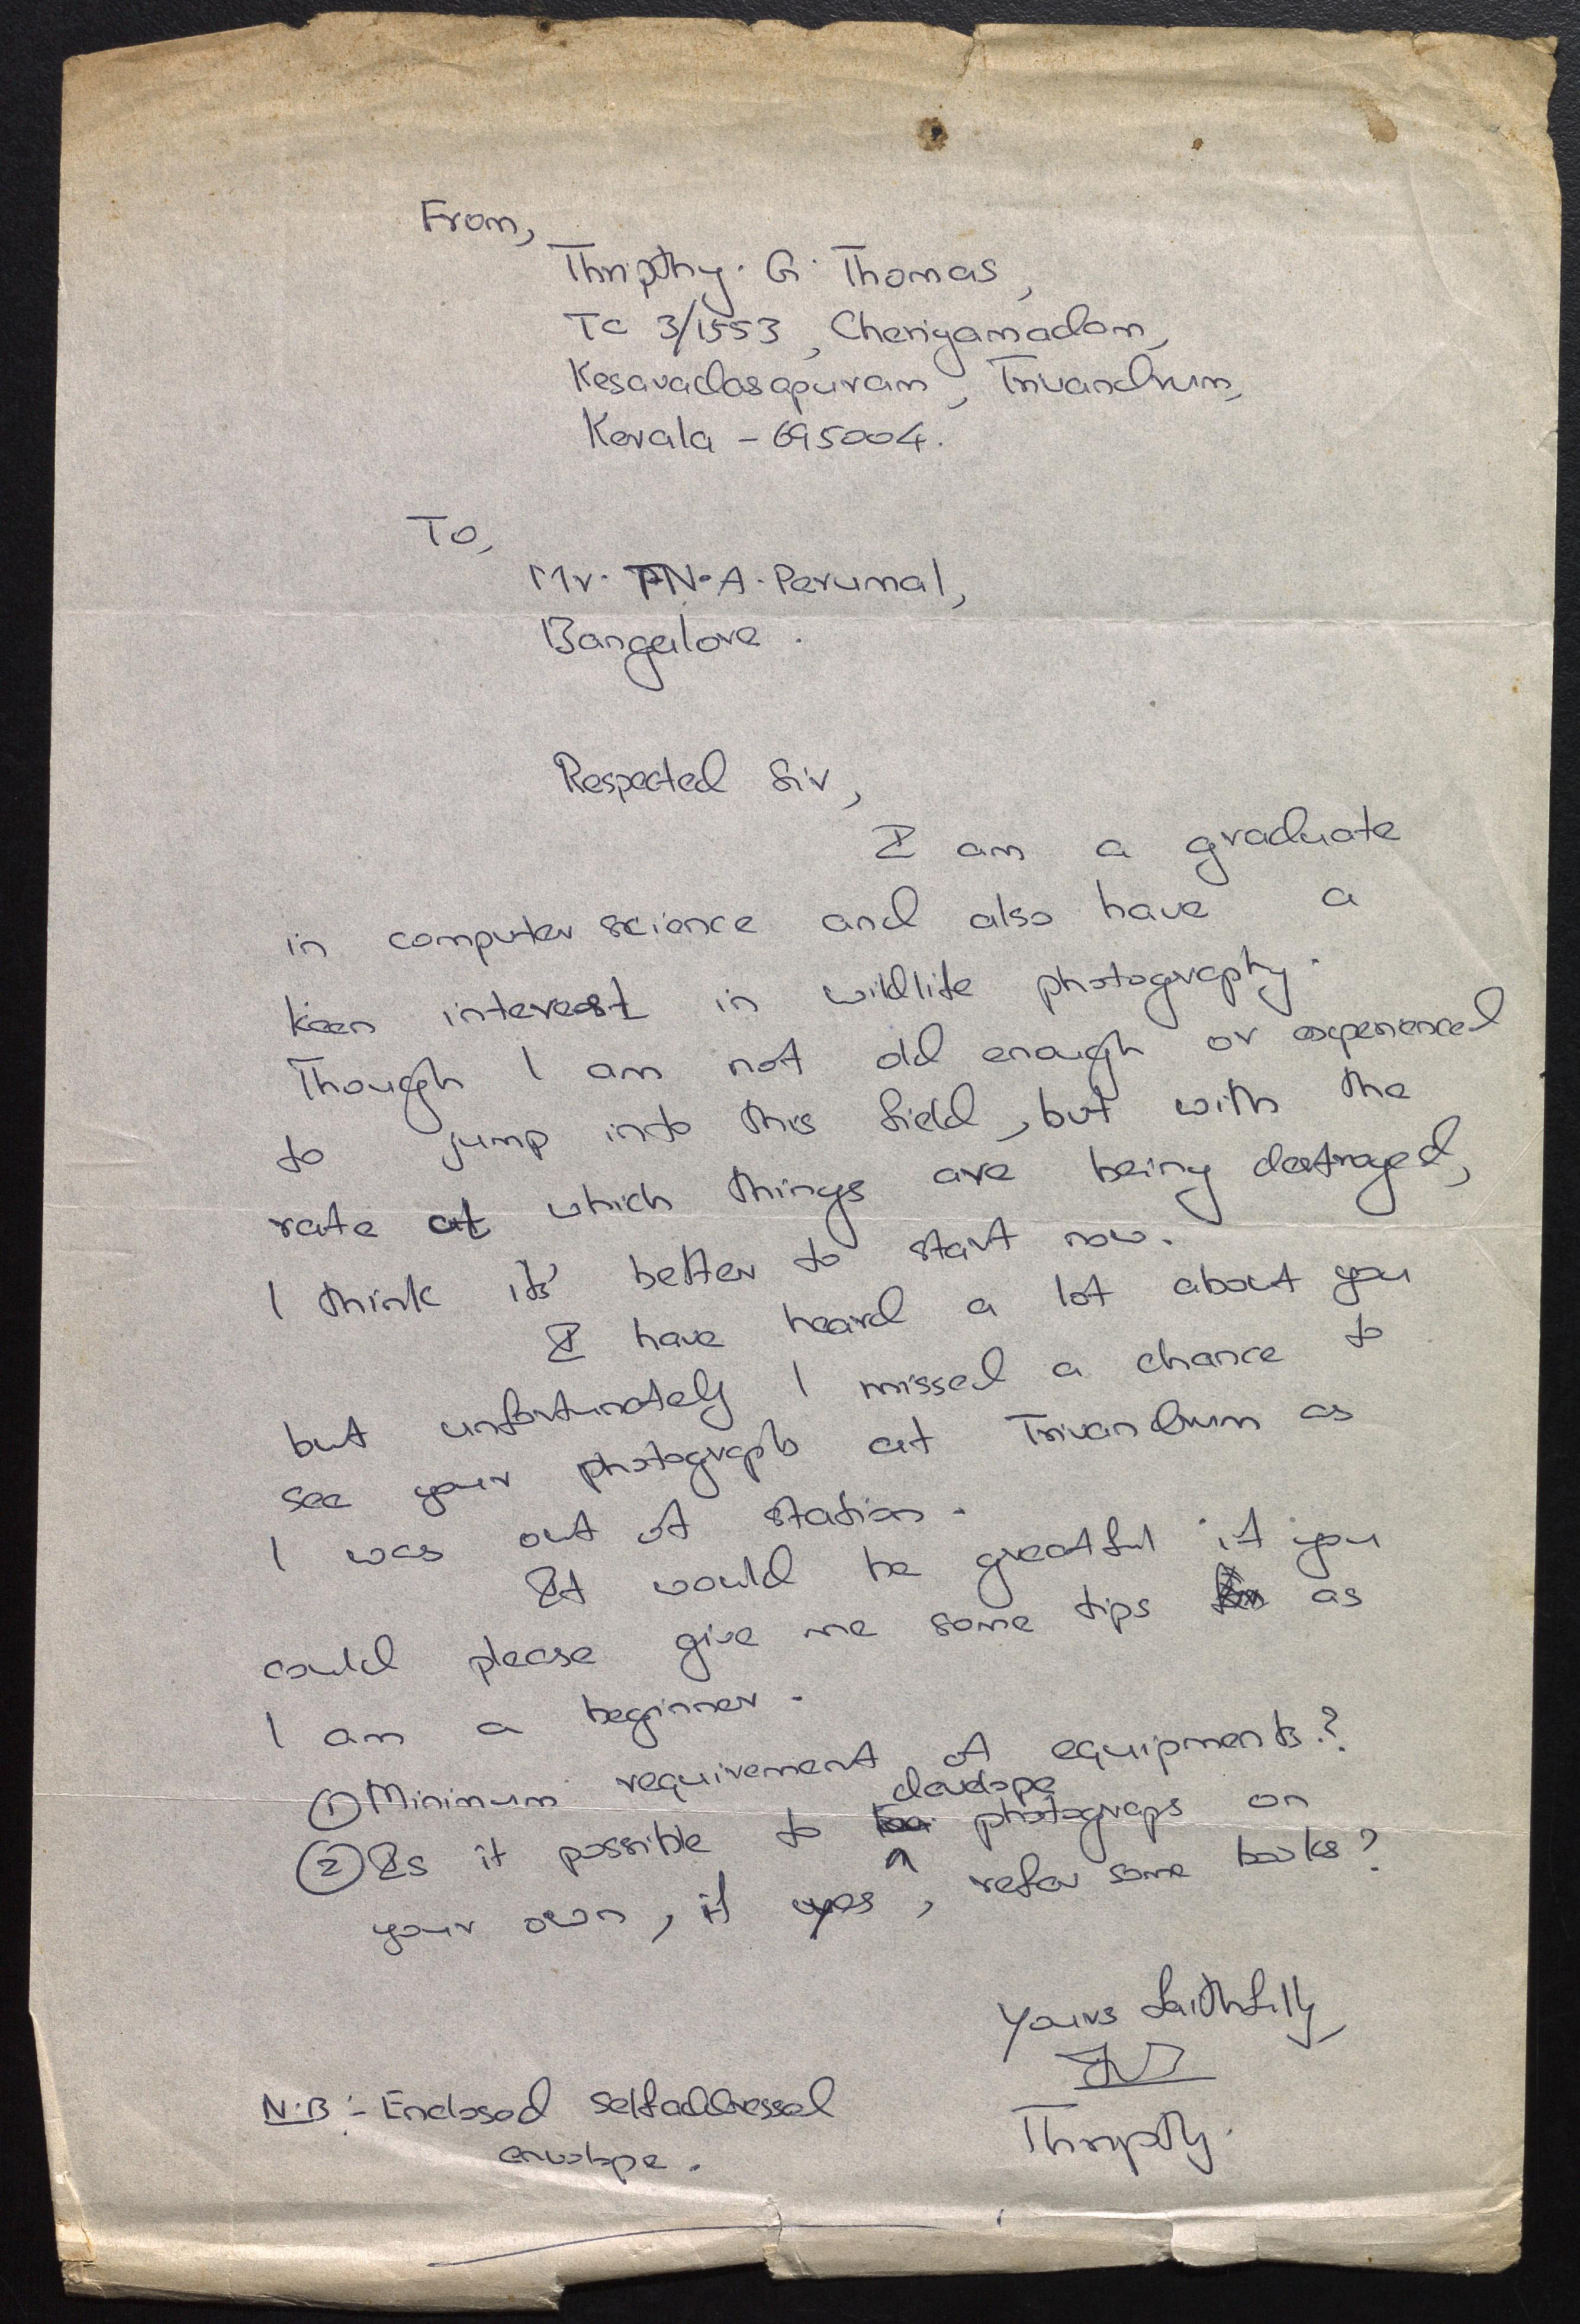 From,
Thripthy. G. Thomas,
TC 3/1553, Cheriyamadom,
Kesavadasapuram, Trivandrum,
Kerala - 695004.
To,
Mr. T.N.A. Perumal,
Bangalore.
Respected Sir,
I am a graduate
in computer science and also have a
keen interest in wildlife photography.
Though I am not old enough or experienced
to jump into this field, but with the
rate at which things are being destroyed,
I think it's better to start now.
I have heard a lot about you
but unfortunately I missed a chance to
see your photographs at Trivandrum as
I was out of station.
It would be greatful if you
could please give me some tips as
I am a beginner.
① Minimum requirement of equipments.?
② Is it possible to develope photograps on
your own, if yes, refer some books?
Yours faithfully,
Thripthy.
N.B :- Enclosed selfaddressed
envelope.